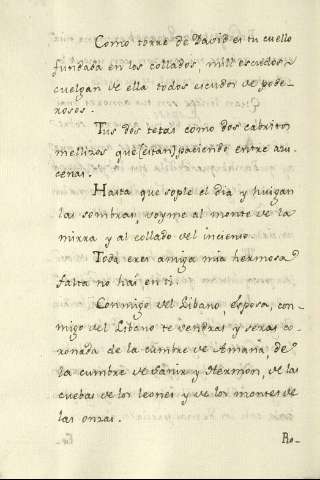 Como torre de David es tu cuello
fundada en los collados, mill escudos
cuelgan de ella todos escudos de pode-
rosos.
Tus dos tetas como dos cabritos
mellizos que [estan] paciendo entre azu-
cenas.
Hasta que sople el dia y huigan
las sombras, voyme al monte de la
mirra y al collado del incienso.
Toda eres amiga mia hermosa
falta no hai en ti.
Conmigo del Libano, esposa, con-
migo del Libano te vendras y seras co-
ronada de la cumbre de Amana, de
la cumbre de Sanir y Hermón, de las
cuebas de los leones y de los montes de
las onzas.
Ro-